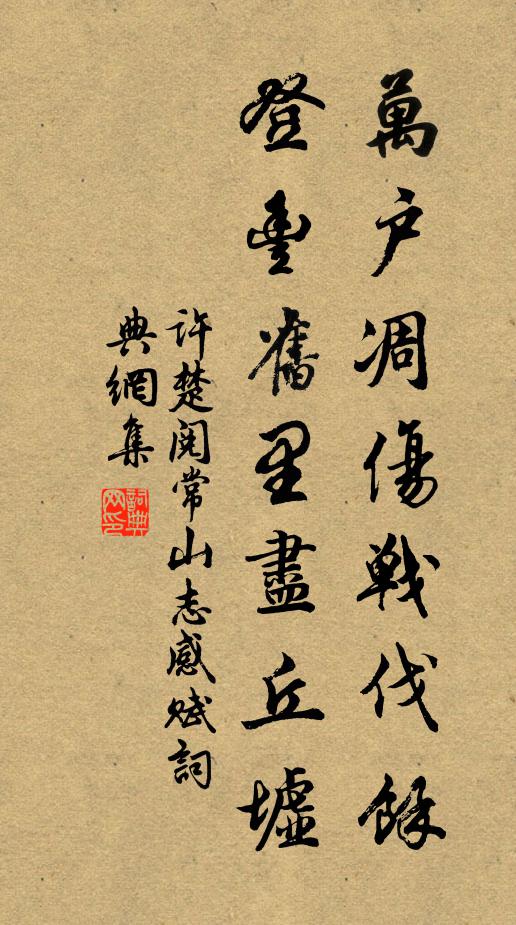 萬戶凋傷戰伐餘
登豐舊里盡丘墟
許楚閱常山志感賦詞
典網集
詞典網印